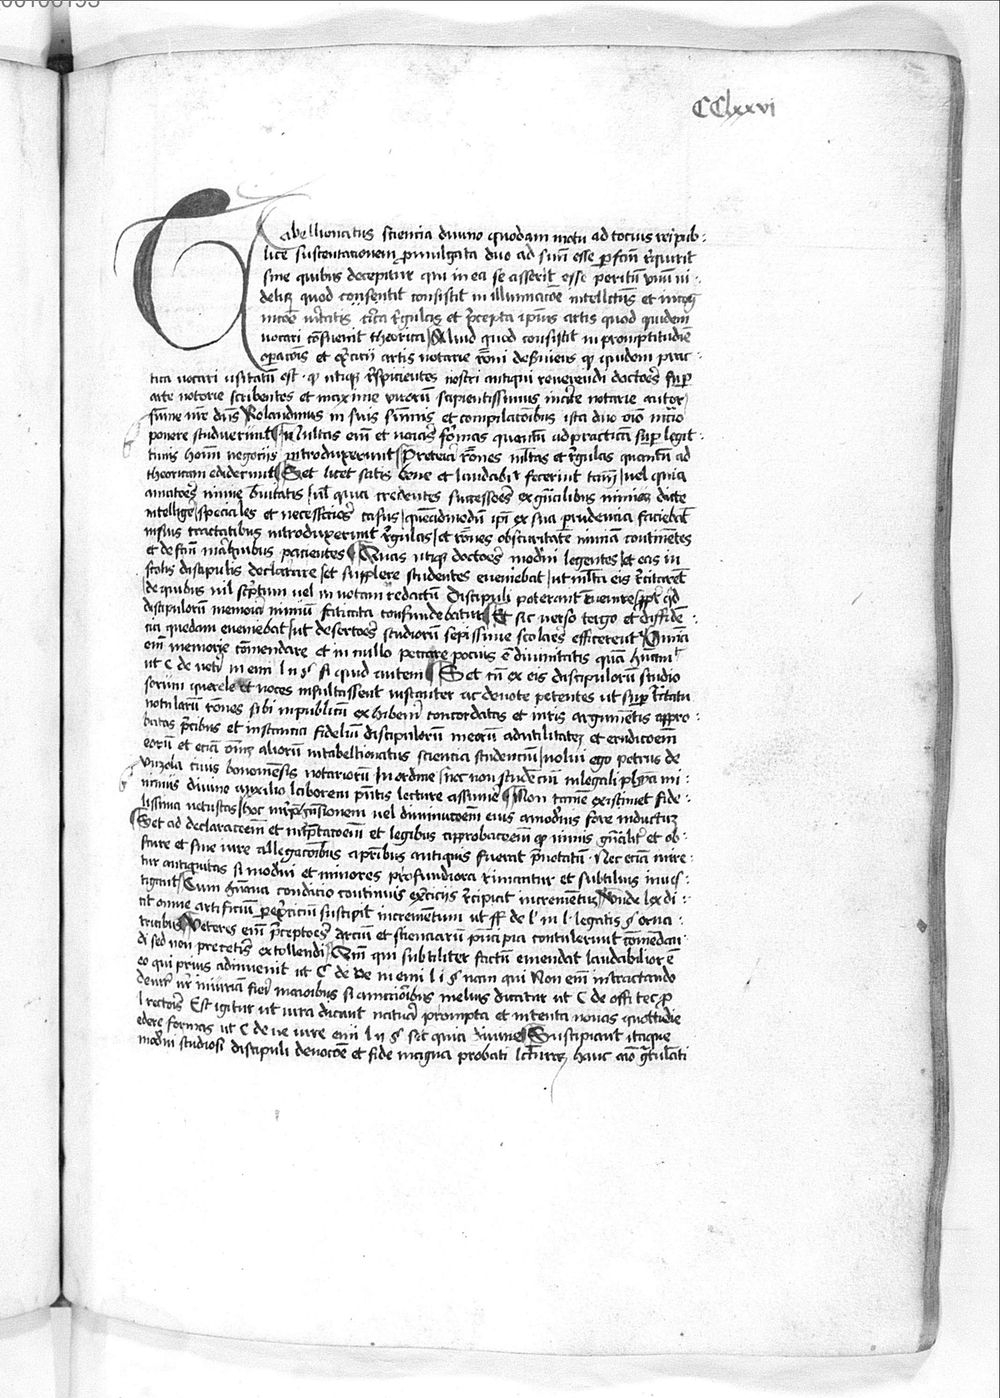 00100193
CClxxvi
Tabellionatus sciencia divino quodam motu ad tocius reipub:
lice sustentacionem promulgata duo ad sui esse perfctu requirit
sine quibus decipitur qui in ea se asserit esse peritum unum vi:
delicet quod consentit consistit in illuminacoe intellectus et
vitatis circa regulas et precepta ipius artis quod quidem
vocari consuevit theorica Aliud quod consistit in promptitudine
operacois et exercicii artis notarie roni deserviens quod quidem prac:
tica vocari usitatu est utique respicientes nostri antiqui reverendi doctores super
arte notorie scribentes et maxime virorum sapientissimus notarie autor
sume nre dns Rolandinus in suis summis et compilacoibus ista duo
ponere studuerunt Multas enim et varias formas quantu ad practicam super legit:
timis hominum negociis introduxerunt Preterea rones multas et regulas quantu ad
theoricam ediderunt Set licet satis bene et laudabiliter fecerint tamen vel quia
amatores nimie brevitatis vel quia credentes successores ex generalibus nimium dicte
intelligere speciales et necessarios casus quemadmodum ipsi ex sua prudencia faciebat
in suis tractatibus introduxerunt regulas et rones obscuritate nimia continentes
et defectum in aliquibus pacientes Quas utique doctores moderni legentes et eas in
scolis discipulis declarare set supplere studentes eveniebat ut multa eis recitaret
de quibus nil scriptum vel in notam redactum discipuli poterant
discipulorum memoria nimium facilitata confundebatur Et sic verso tergo et diffiden:
cia quedam eveniebat ut desertores studiorum sepissime scolares efficerentur Omnia
enim memorie comendare et in nullo peccare pocius est divinitatis quam humani
ut C de veti iu enu l ii § si quid autem Set cum ex eis discipulorum studio
sorum querele et voces insultassent instanter ac devote petentes ut super tractatu
notularum rones sibi in publicum exhiberem concordatas et iuris argumentis appro:
batas precibus et instancia fidelium discipulorum meorum ad utilitatem et erudicoem
eorum et etiam omnium aliorum in tabellionatus sciencia studencium volui ego petrus de
Unzola civis bononiensis notariorum in ordine nec non studencium in legali phya mi:
nimus divino auxilio laborem presentis lecture assumere Non tamen existimet fide:
lissima vetustas hoc in reprehensionem vel diminucoem eius a modernis fore inductum
Set ad declaracoem et interpretacoem et legibus approbacoem quod nimis generaliter et ob:
scure et sine iure allegacoibus a patribus antiquis fuerat prenotatum Nec etiam mire:
tur antiquitas si moderni et minores profundiora rimantur et subtilius inves:
tigant Cum humana condicio continuis exerciciis recipiat incrementum Unde lex di:
cit omne artificium per exercicium suscipit incrementum ut ff de l iii l legatis § orna:
tricibus Veteres enim preceptores arcium et scienciarum principia contulerunt comendan:
di sed non preceteris extollendi Quum qui subtiliter factum emendat laudabilior est
eo qui prius adinvenit ut C de ve iu enu l i § nam qui Non enim in tractando
denter ur iniuriam fieri maioribus si a minoribus melius dicatur ut C de offi rec p
l rectores Est igitur ut iura dicant natura prompta et intenta novas quottidie
edere formas ut C de ve iure enu l ii § set quia divine Suscipiant itaque
moderni studiosi discipuli devocoe et fide magna probati lecturam hanc